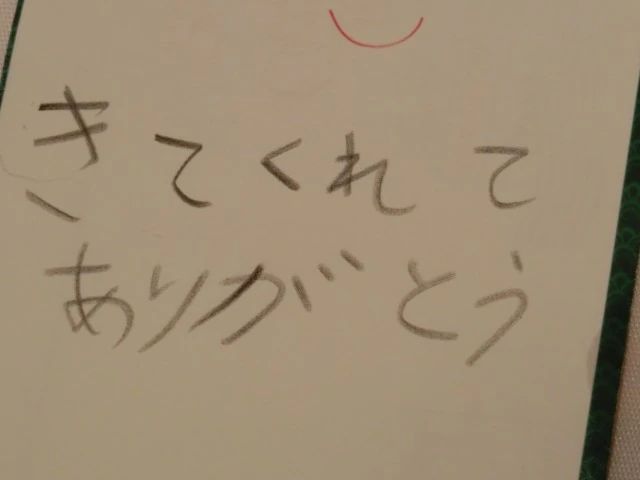 きてくれて
ありがとう